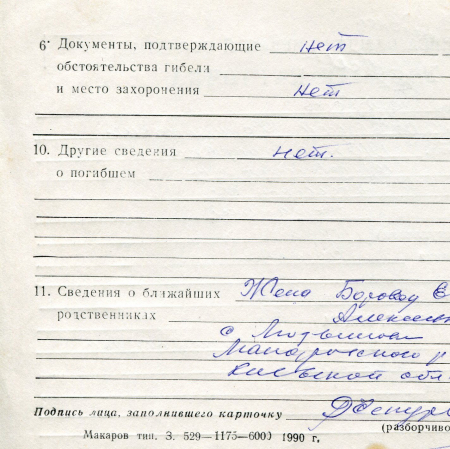 6. Документы, подтверждающие нет
обстоятельства гибели
и место захоронения нет
10. Другие сведения нет.
о погибшем
11. Сведения о ближайших Жена Боровод Е
родственниках Алексеев
с.
Макаровского р
Киевской обл
Подпись лица, заполнившего карточку
(разборчиво
Макаров тип. З. 529—1175—6000 1990 г.